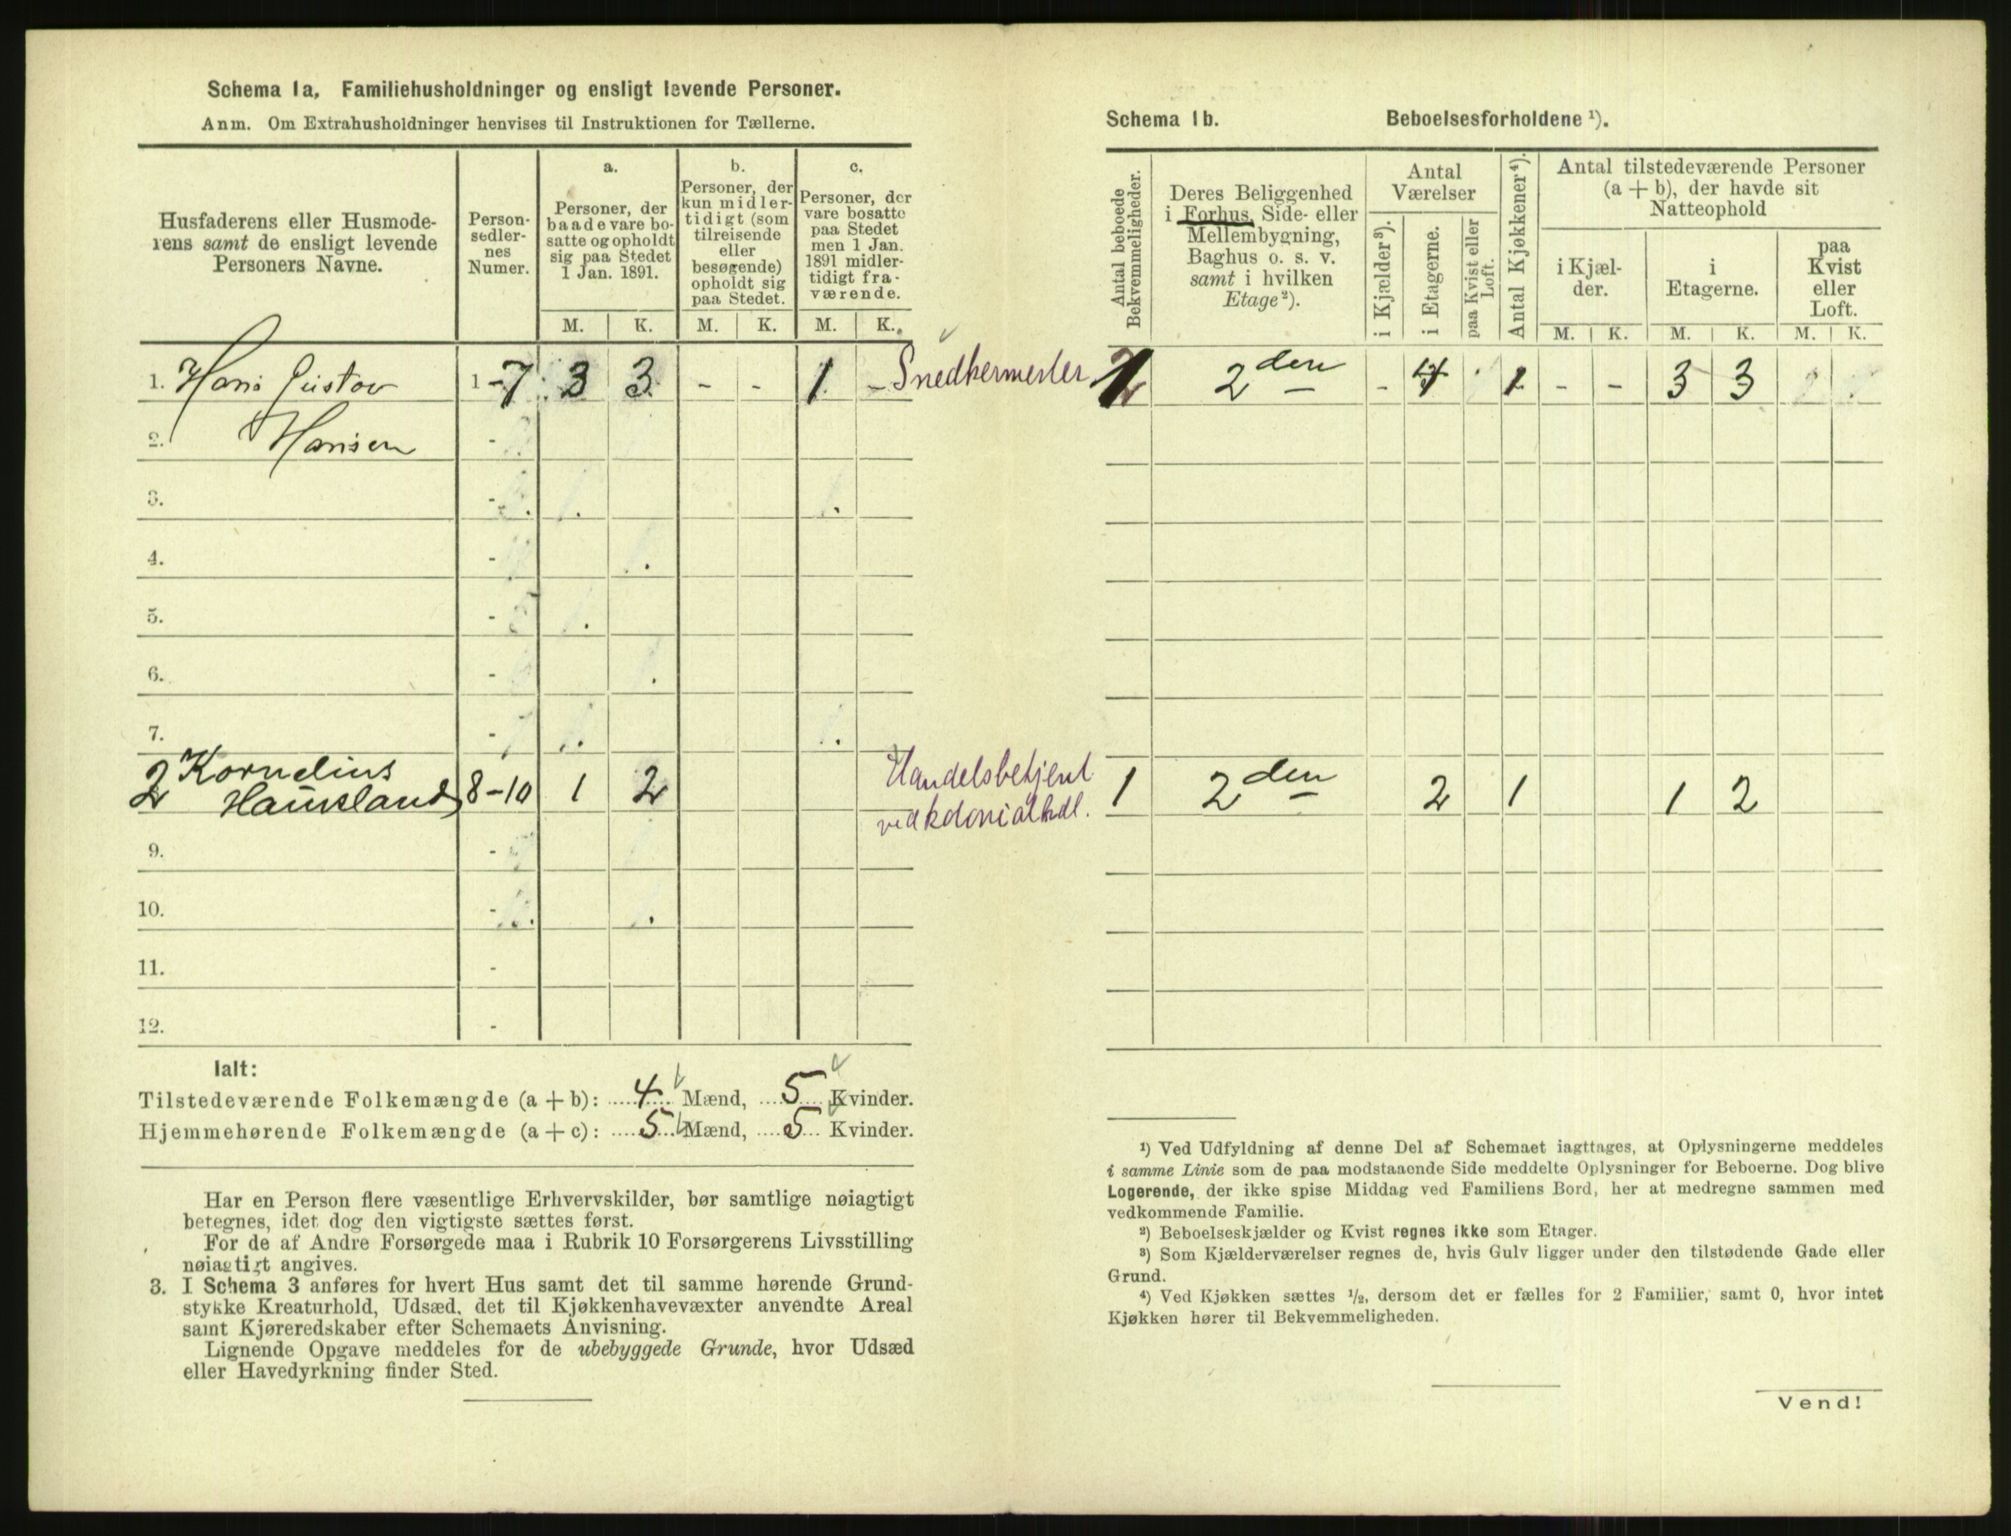 Schema 1a. Familiehusholdninger og ensligt levende Personer.
Anm. Om Extrahusholdninger henvises til Instruktionen for Tællerne.
Husfaderens eller Husmode-
rens samt de ensligt levende
Personers Navne.
Person-
sedler-
nes
Numer.
a.
Personer, der
baade vare bo-
satte og opholdt
sig paa Stedet
1 Jan. 1891.
b.
Personer, der
kun midler-
tidigt (som
tilreisende
eller
besøgende)
opholdt sig
paa Stedet.
c.
Personer, der
vare bosatte
paa Stedet
men 1 Jan.
1891 midler-
tidigt fra-
værende.
M. K. M. K. M. K.
1. Hans Gustav 1-7 3 3 - - 1 - Snedkermester
2. Hansen -
3. -
4. -
5. -
6. -
7. -
2 Kornelius
Hausland 8-10 1 2 Handelsbetjent
ved kolonialhdl.
9. -
10. -
11. -
12. -
Ialt:
Tilstedeværende Folkemængde (a + b): 4 Mænd, 5 Kvinder.
Hjemmehørende Folkemængde (a + c): 5 Mænd, 5 Kvinder.
Har en Person flere væsentlige Erhvervskilder, bør samtlige nøiagtigt
betegnes, idet dog den vigtigste sættes først.
For de af Andre Forsørgede maa i Rubrik 10 Forsørgerens Livsstilling
nøiagtigt angives.
3. I Schema 3 anføres for hvert Hus samt det til samme hørende Grund-
stykke Kreaturhold, Udsæd, det til Kjøkkenhavevæxter anvendte Areal
samt Kjøreredskaber efter Schemaets Anvisning.
Lignende Opgave meddeles for de ubebyggede Grunde, hvor Udsæd
eller Havedyrkning finder Sted.
Schema 1b. Beboelsesforholdene ¹).
Antal beboede
Bekvemmeligheder.
Deres Beliggenhed
i Forhus, Side- eller
Mellembygning,
Baghus o. s. v.
samt i hvilken
Etage ²).
Antal
Værelser
i Kjælder ³).
i Etagerne.
paa Kvist eller
Loft.
Antal Kjøkkener ⁴).
Antal tilstedeværende Personer
(a + b), der havde sit
Natteophold
i Kjæl-
der.
i
Etagerne.
paa
Kvist
eller
Loft.
M. K. M. K. M. K.
1 2den - 4 1 - - 3 3
1 2den 2 1 1 2
¹) Ved Udfyldning af denne Del af Schemaet iagttages, at Oplysningerne meddeles
i samme Linie som de paa modstaaende Side meddelte Oplysninger for Beboerne. Dog blive
Logerende, der ikke spise Middag ved Familiens Bord, her at medregne sammen med
vedkommende Familie.
²) Beboelseskjælder og Kvist regnes ikke som Etager.
³) Som Kjælderværelser regnes de, hvis Gulv ligger under den tilstødende Gade eller
Grund.
⁴) Ved Kjøkken sættes ¹/₂, dersom det er fælles for 2 Familier, samt 0, hvor intet
Kjøkken hører til Bekvemmeligheden.
Vend!